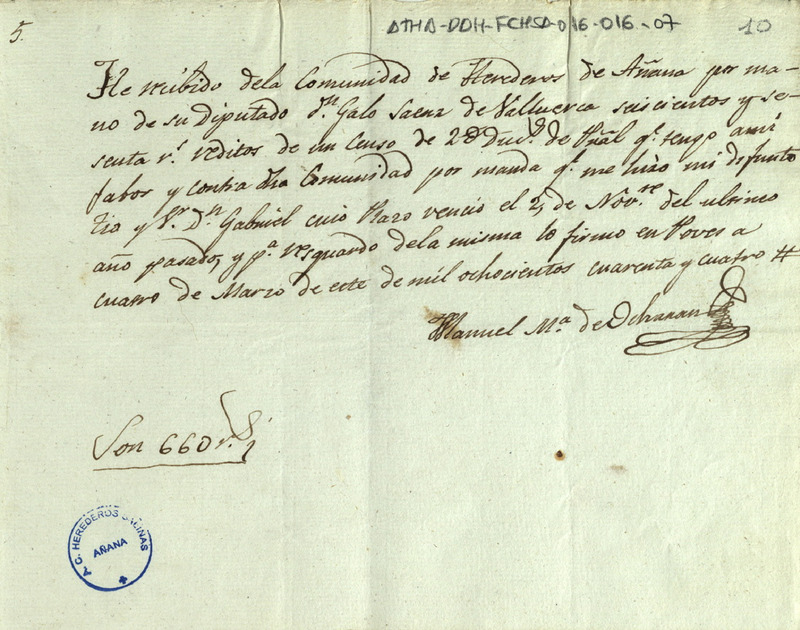 5.
ATHA-DDH-FCHSA-016-016-07
10
He recibido dela Comunidad de Herederos de Añana por ma-
no de su Diputado dn. Galo Saenz de Valluerca seiscientos y se-
senta rs. reditos de un Censo de 2@ Ducs. de Pral qe. tengo a mi
fabor y contra dha Comunidad por manda qe. me hizo mi difunto
tio y Sr. Dn. Gabriel cuio Plazo venció el 2, de Novre. del ultimo
año pasado, y pa. resguardo dela misma lo firmo en Poves a
cuatro de Marzo de este de mil ochocientos cuarenta y cuatro #
Manuel Ma. de
Son 660 rs.
A. C. HEREDEROS SALINAS
AÑANA